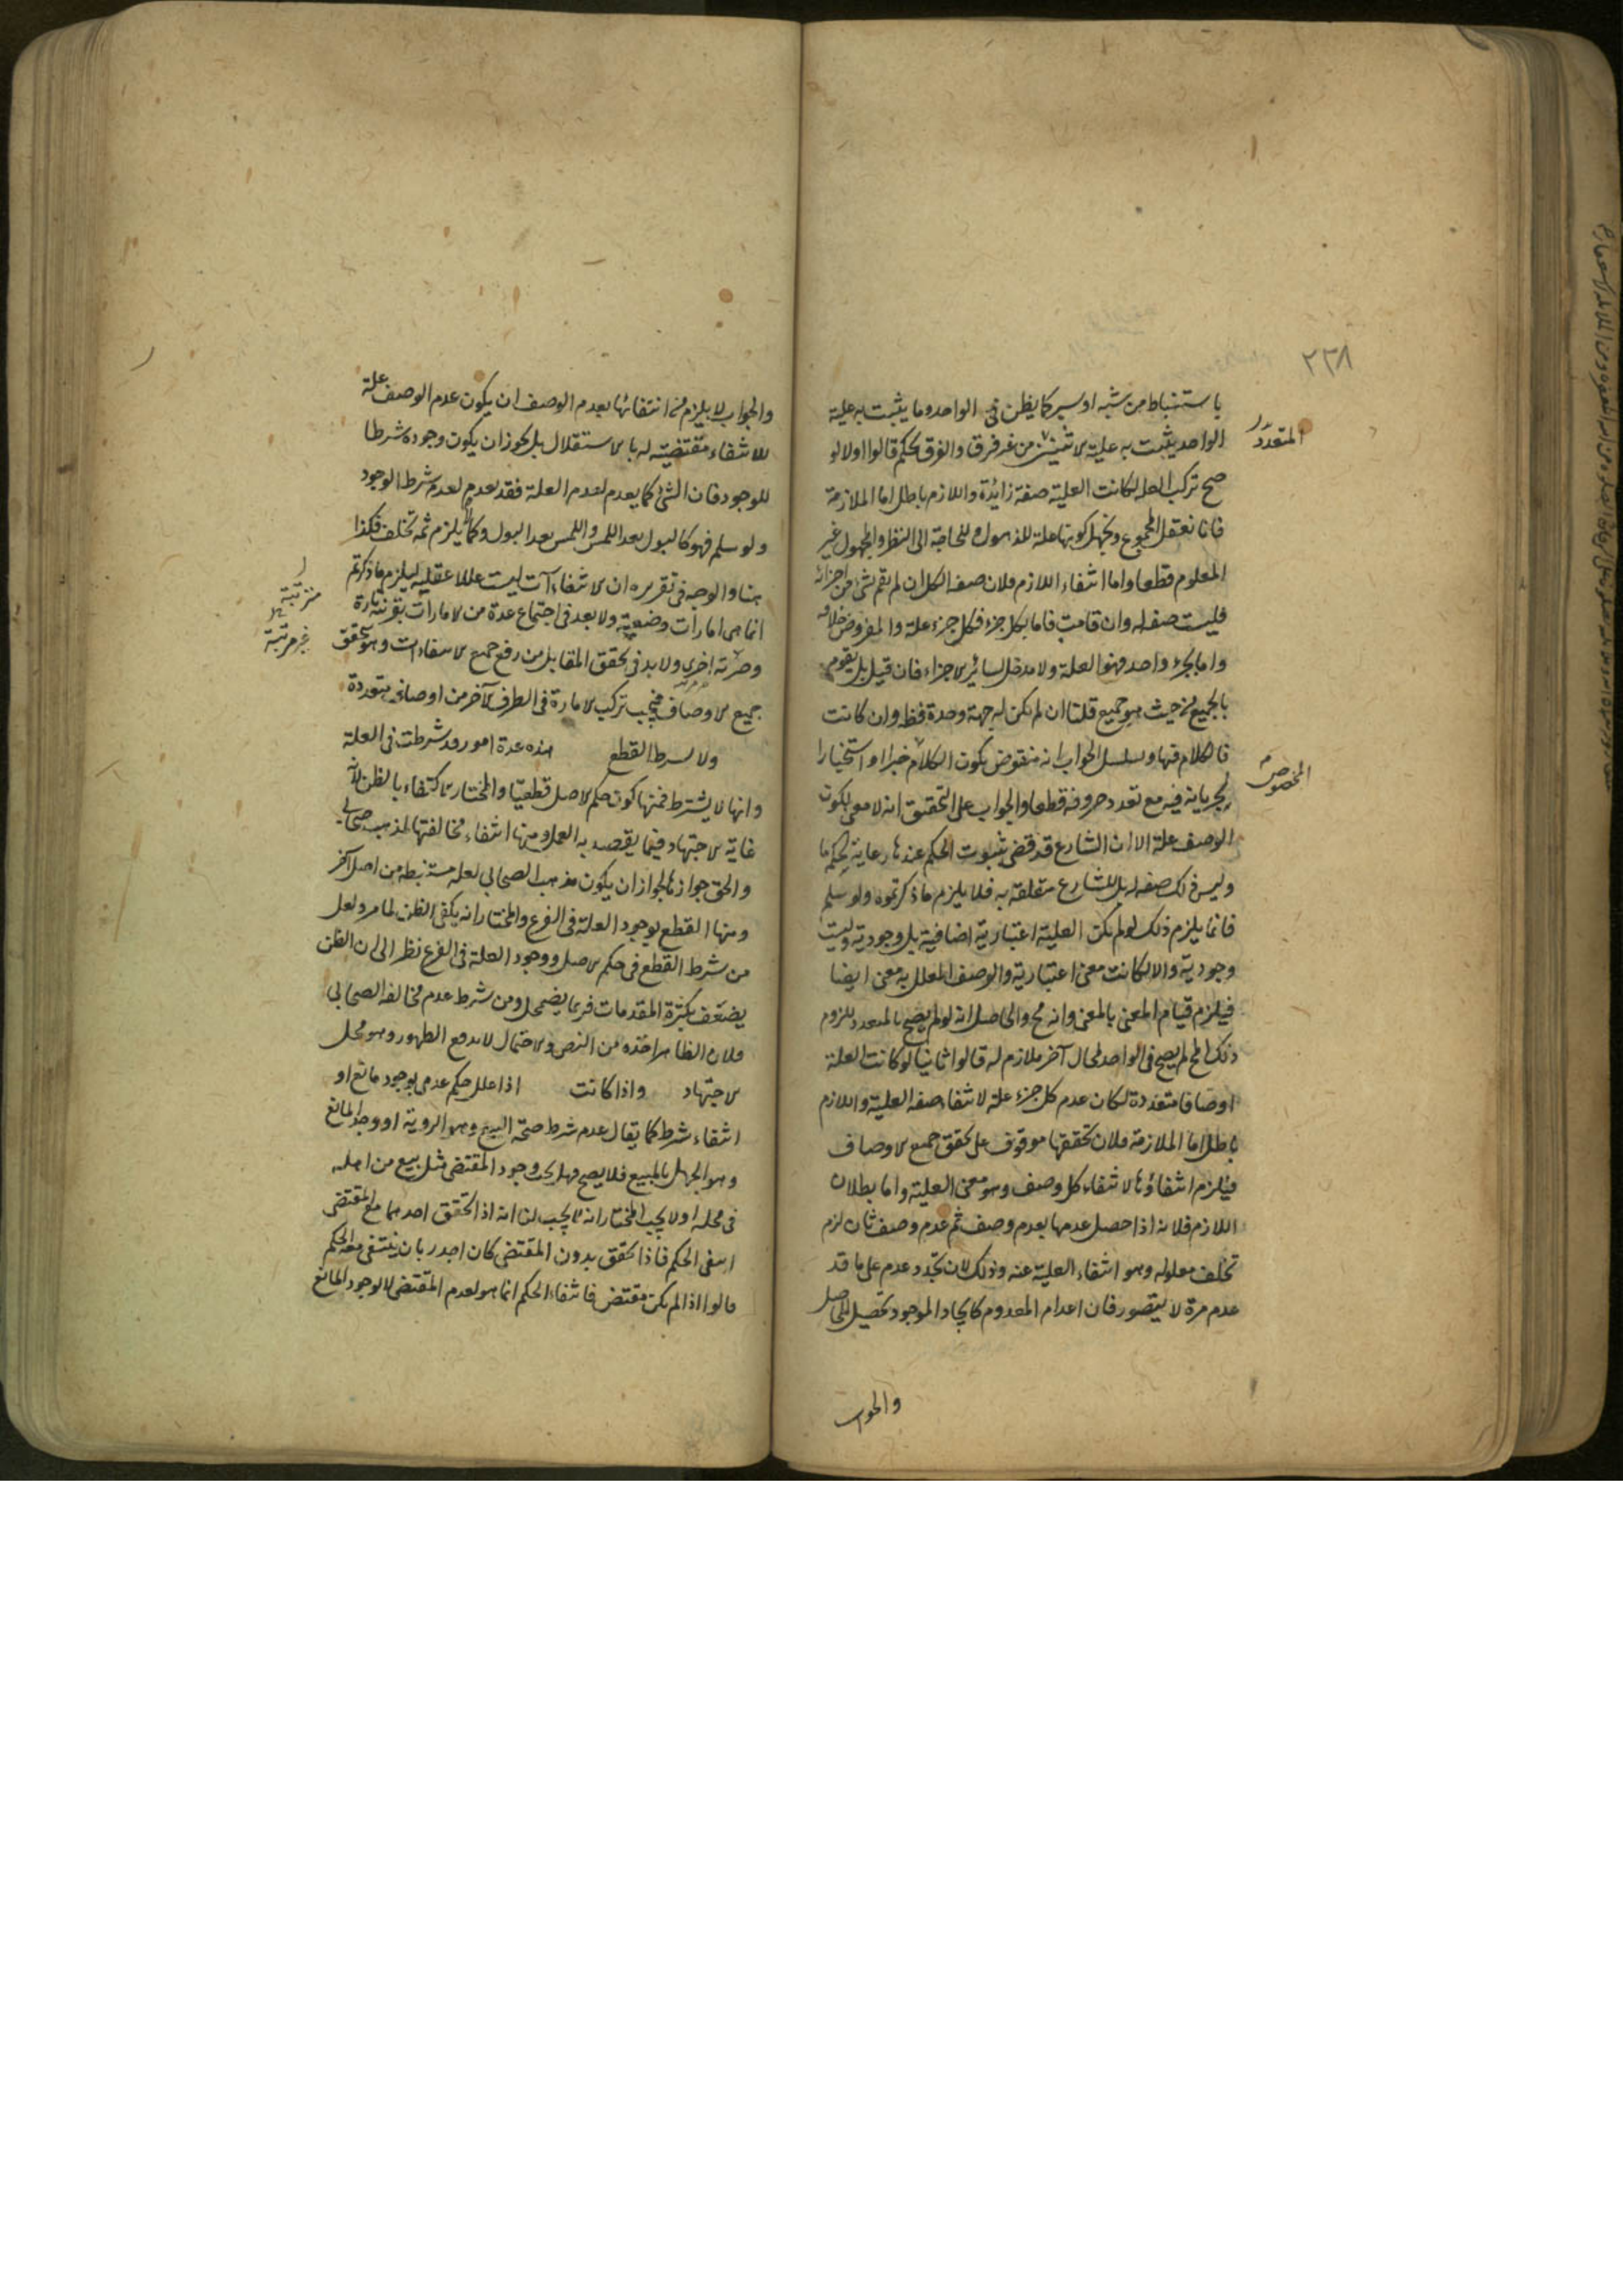 ٢٢٨
باستنباط من شبه او سبر كما يظن فى الواحد وما يثبت به علية
المتعدد
الواحد يثبت به علية المتعدد من غير فرق والفرق تحكم قالوا اولا لو
صح تركب العلة لكانت العلية صفة زائدة واللازم باطل اما الملازمة
فانا نعقل المجموع ونجهل كونها علة للذهول وللحاجة الى النظر والمجهول غير
المعلوم قطعا واما انتفاء اللازم فلان صفة الكل ان لم تقم بشئ من اجزائه
فليست صفة له وان قامت فاما بكل جزء فكل جزء علة والمفروض خلافه
واما بجزء واحد فهو العلة ولا مدخل لسائر الاجزاء فان قيل بل يقوم
بالجميع من حيث هو جميع قلنا ان لم تكن له جهة وحدة فظ وان كانت
فالكلام فيها ويتسلسل الجواب انه منقوض بكون الكلام خبرا او استخبارا
المخصوص
لجريانه فيه مع تعدد حروفه قطعا والجواب على التحقيق انه لا معنى لكون
الوصف علة الا ان الشارع قد قضى بثبوت الحكم عندها رعاية لحكم ما
وليس ذلك صفة له بل للشارع متعلقة به فلا يلزم ما ذكرتموه ولو سلم
فانما يلزم ذلك لو لم تكن العلية اعتبارية اضافية بل وجودية وليست
وجودية والا لكانت معنى اعتبارية والوصف المعلل به معنى ايضا
فيلزم قيام المعنى بالمعنى وانه مح والحاصل انه لو لم يصح بالمتعدد للزوم
ذلك المح لم يصح فى الواحد لمحال آخر ملازم له قالوا ثانيا لو كانت العلة
اوصافا متعددة لكان عدم كل جزء علة لانتفاء صفة العلية واللازم
باطل اما الملازمة فلان تحققها موقوف على تحقق جميع الاوصاف
فيلزم انتفاؤها لانتفاء كل وصف وهو معنى العلية واما بطلان
اللازم فلانه اذا حصل عدمها بعدم وصف ثم عدم وصف ثان لزم
تخلف معلوله وهو انتفاء العلية عنه وذلك لان تجدد عدم على ما قد
عدم مرة لا يتصور فان اعدام المعدوم كايجاد الموجود تحصيل للحاصل
والجواب
والجواب لا يلزم من انتفائها بعدم الوصف ان يكون عدم الوصف علة
للانتفاء مقتضية له بالاستقلال بل يجوز ان يكون وجوده شرطا
للوجود فان الشئ كما يعدم لعدم العلة فقد يعدم لعدم شرط الوجود
ولو سلم فهو كالبول بعد اللمس واللمس بعد البول وكما لا يلزم ثمه تخلف فكذا
هنا والوجه فى تقريره ان الانتفاءآت ليست عللا عقلية ليلزم ما ذكرتم
مترتبة
انما هى امارات وضعية ولا بعد فى اجتماع عدة من الامارات تارة
غير مرتبة
وضربة اخرى ولا بد فى تحقق المقابل من رفع جميع الانتفاءات وهو بتحقق
جميع الاوصاف فيجب تركب الامارة فى الطرف الآخر من اوصاف متعددة
ولا يشترط القطع هذه عدة امور قد شرطت فى العلة
وانها لا يشترط فمنها كون حكم الاصل قطعيا والمختار الاكتفاء بالظن لانه
غاية الاجتهاد فيما يقصد به العمل ومنها انتفاء مخالفتها لمذهب صحابي
والحق جوازها لجواز ان يكون مذهب الصحابي لعلة مستنبطة من اصل آخر
ومنها القطع بوجود العلة فى الفرع والمختار انه يكفى الظن لما مر ولعل
من شرط القطع فى حكم الاصل ووجود العلة فى الفرع نظر الى ان الظن
يضعف بكثرة المقدمات فربما يضمحل ومن شرط عدم مخالفة الصحابي
فلان الظاهر اخذه من النص والاحتمال لا يدفع الظهور وهو محل
الاجتهاد واذا كانت اذا علل حكم عدمى بوجود مانع او
انتفاء شرط كما يقال عدم شرط صحة البيع وهو الروية او وجد المانع
وهو الجهل بالمبيع فلا يصح فهل يجب وجود المقتضى مثل بيع من اهله
فى محله اولا يجب المختار انه لا يجب لنا انه اذا تحقق احدهما مع المقتضى
انتفى الحكم فاذا تحقق بدون المقتضى كان اجدر بان ينتفى معه الحكم
قالوا اذا لم يكن مقتض فانتفاء الحكم انما هو لعدم المقتضى لا لوجود المانع